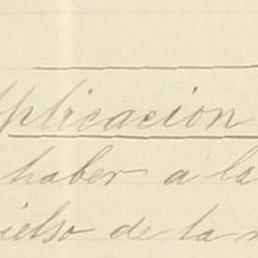 Aplicacion
haber a la
ielso de la